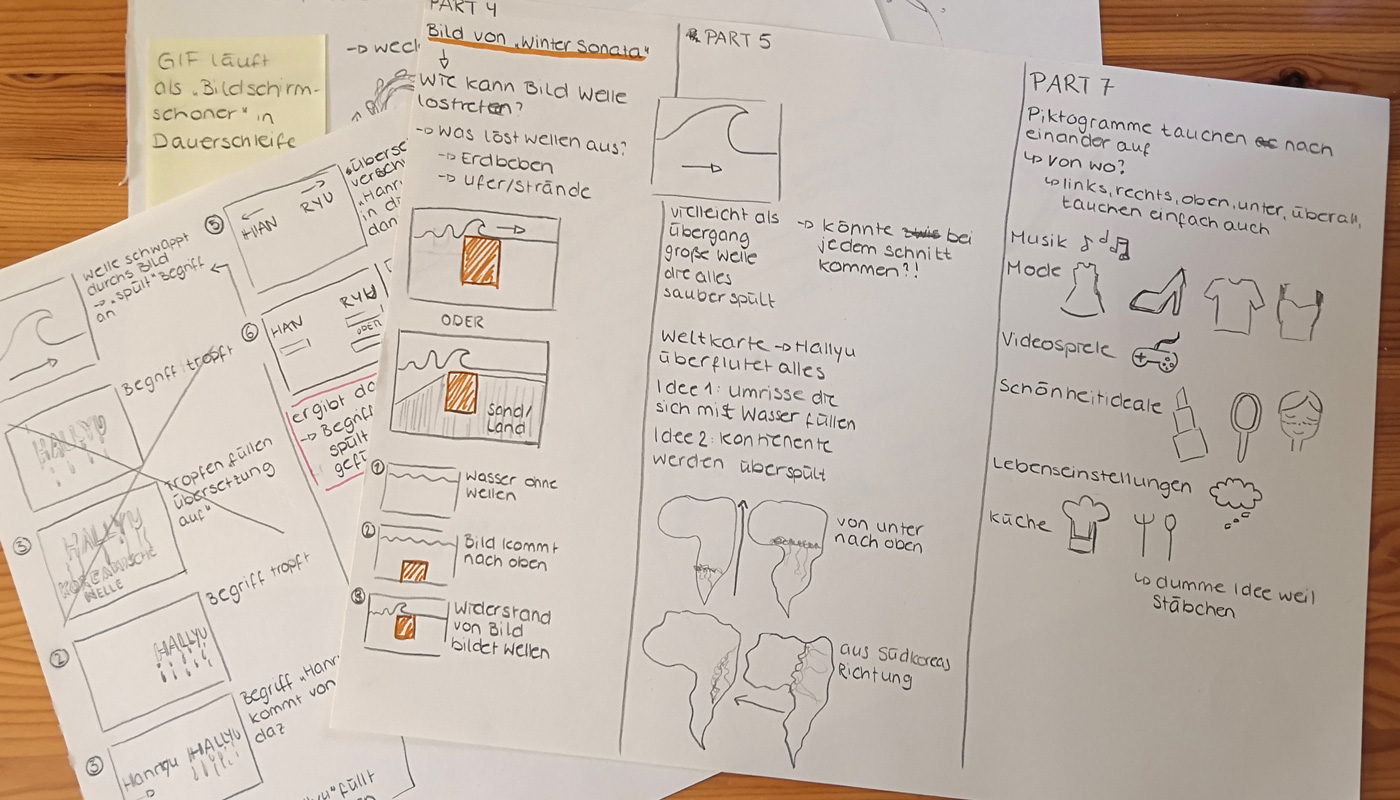 GIF läuft
als „Bildschirm-
schoner" in
Dauerschleife
welle schwappt
durchs Bild
→ „spült" Begriff
an
Begriff tropft
HALLYU
③
Tropfen füllen
übersetzung
auf"
HALLYU
KOREANISCHE
WELLE
②
Begriff tropft
HALLYU
③
Begriff „Hanr
kommt von
daz
Hanryu HALLYU
füllt
⑤
HAN RYU
„überse
versch
„Hanr
in di
dan
⑥
HAN RYU
ODER
ergibt da
→ Begriff
spült
gefü
PART 4
Bild von „Winter Sonata"
↓
Wie kann Bild Welle
lostreten?
→ was löst wellen aus?
→ Erdbeben
→ Ufer/Strände
ODER
Sand/
Land
① wasser ohne
wellen
② Bild kommt
nach oben
③ Widerstand
von Bild
bildet wellen
PART 5
vielleicht als
übergang
große welle
die alles
sauberspült
→ könnte bei
jedem schnitt
kommen?!
Weltkarte → Hallyu
überflutet alles
Idee 1: umrisse die
sich mit Wasser füllen
Idee 2: Konnenente
werden überspült
von unter
nach oben
aus Südkoreas
Richtung
PART 7
Piktogramme tauchen nach
einander auf
↳ von wo?
↳ links, rechts, oben, unter, überall,
tauchen einfach auch
Musik
Mode
Videospiele
Schönheitideale
Lebenseinstellungen
Küche
↳ dumme Idee weil
Stäbchen